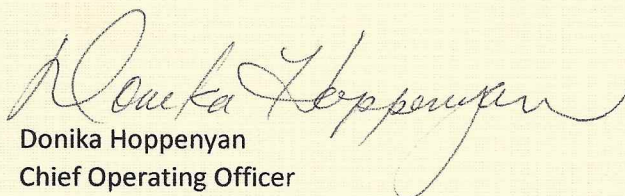 Donika Hoppenyan
Donika Hoppenyan
Chief Operating Officer